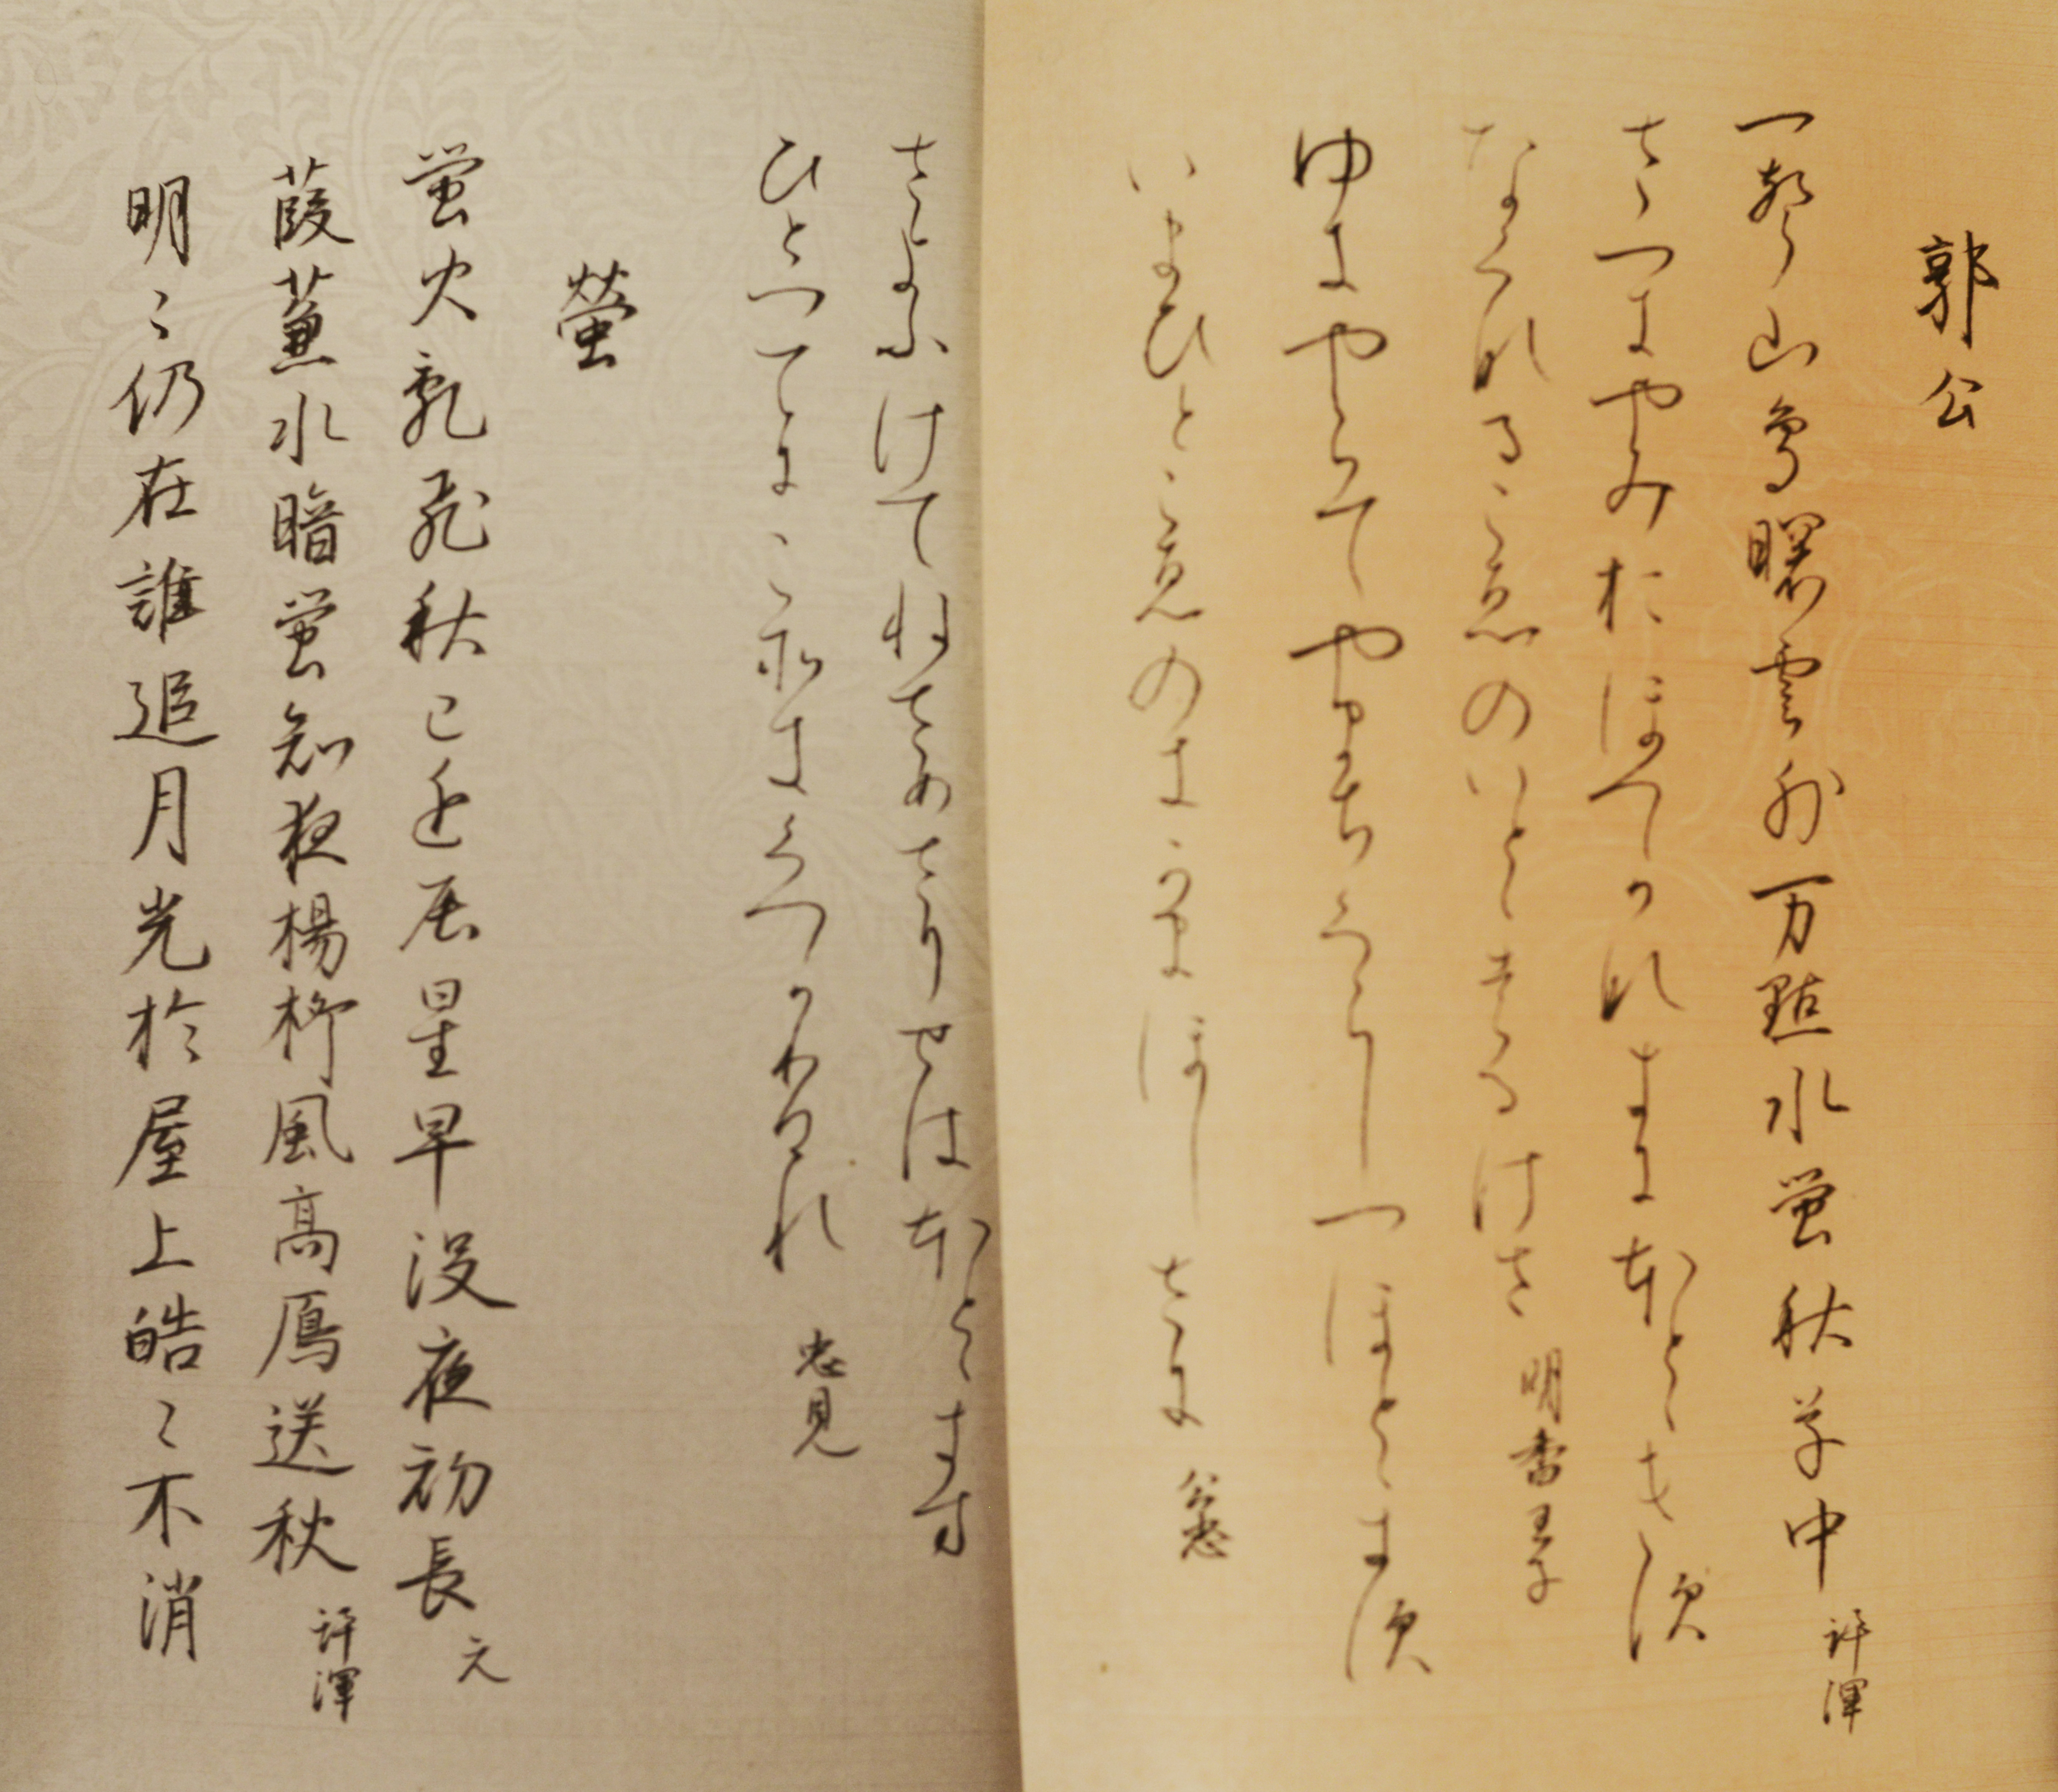 郭公
一聲山鳥曙雲外万點水蛍秋草中 許渾
さつきやみおほつかなきにほとゝきす
なくなるこゑのいとはるけさ 明香皇子
ゆきやらてやまちくらしつほとゝきす
いまひとこゑのきかまほしさに 公忠
さよふけてねさめさりせはほとゝきす
ひとつてにこそきくへかりけれ 忠見
螢
蛍火乱飛秋已近辰星早没夜初長 元
葭蒹水暗蛍知夜楊柳風高鴈送秋 許渾
明〻仍在誰追月光於屋上皓〻不消